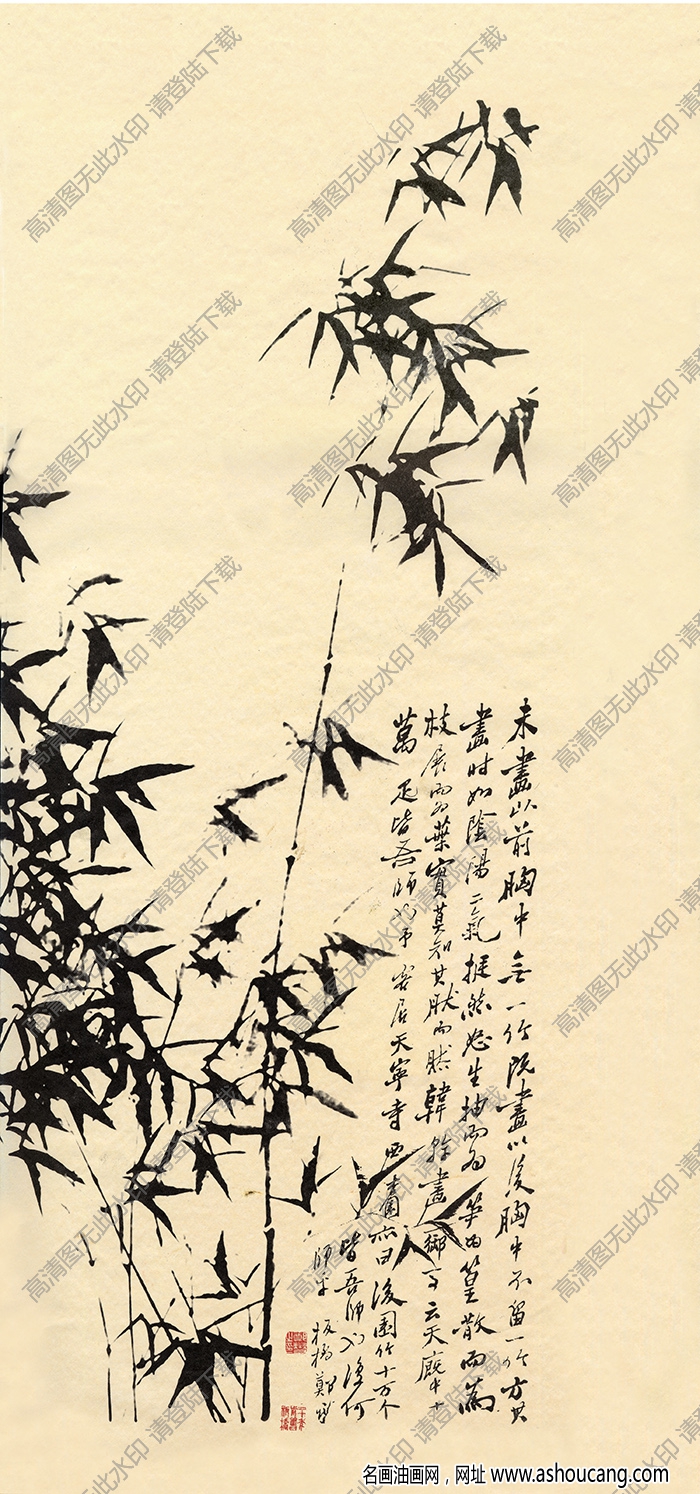 未畫以前胸中無一竹既畫以後胸中不留一竹方其
畫時如陰陽二氣挺然怒生抽而為筍為篁散而為
枝展而為葉實莫知其然而然韓幹畫御馬云天廄中十
萬疋皆吾師也予客居天寧寺西園亦曰後園竹十万个
皆吾師也復何
師乎 板橋鄭燮
高清图无此水印 请登陆下载
名画油画网，网址 www.ashoucang.com